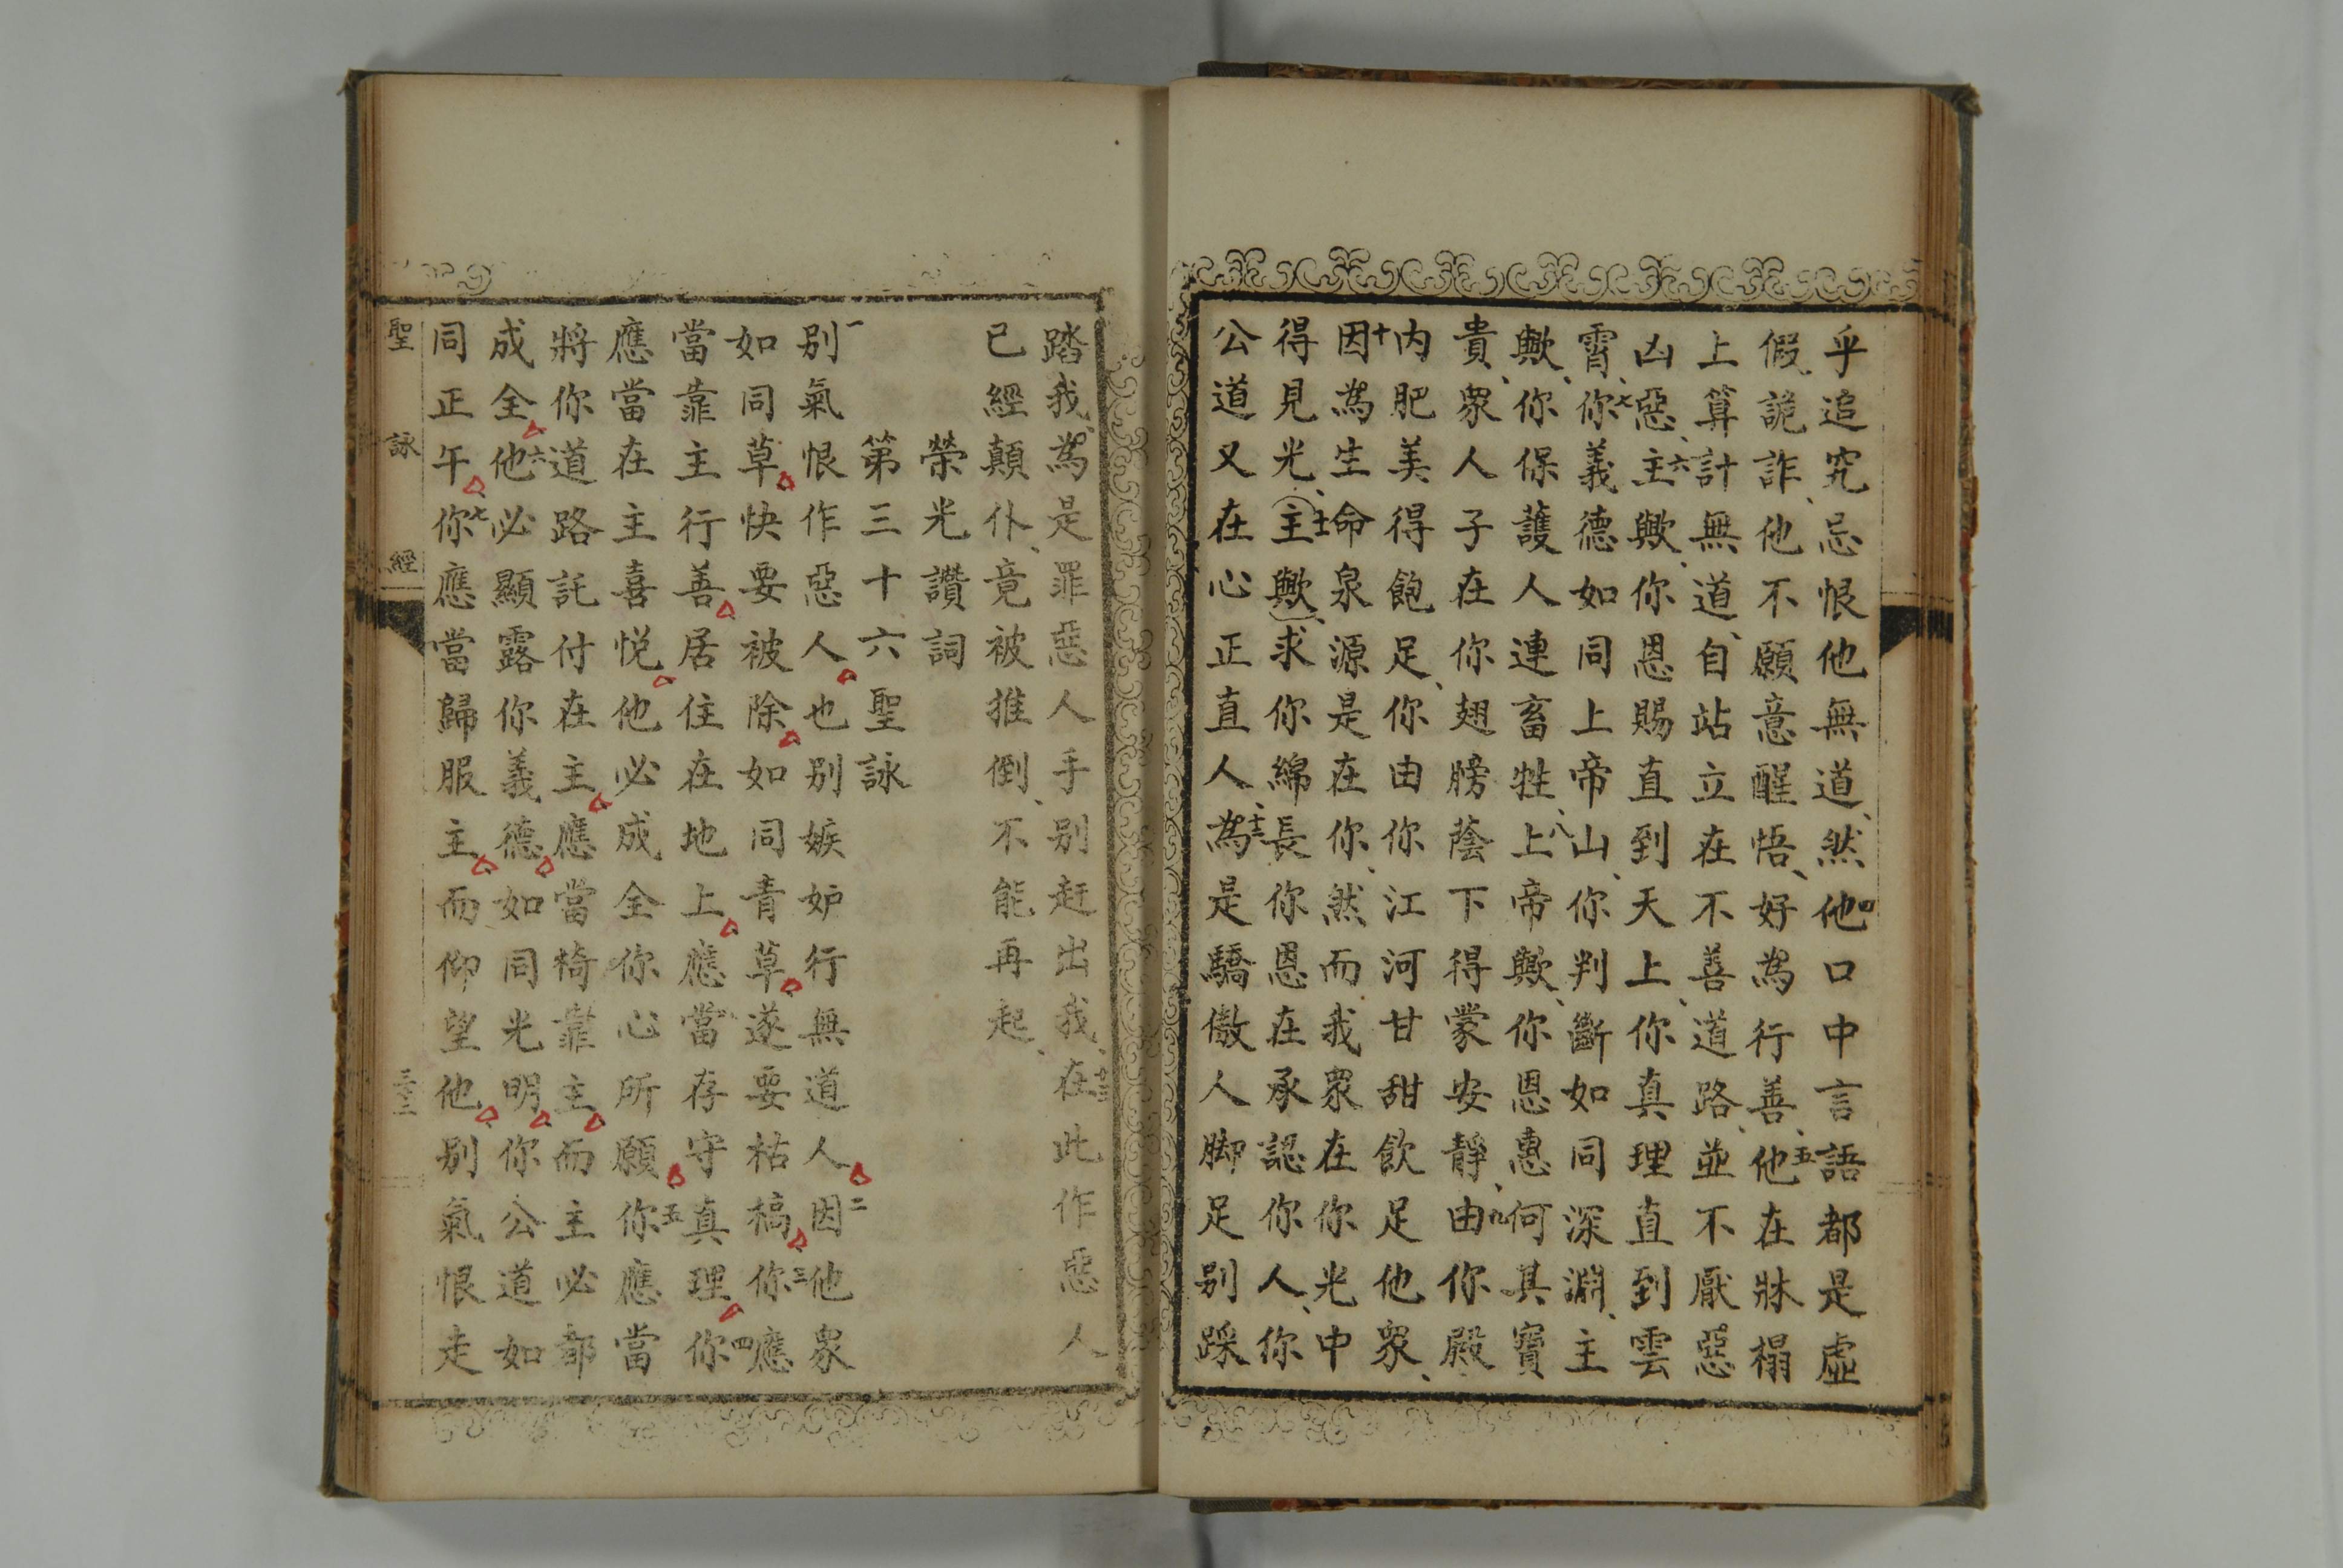 乎追究忌恨他無道、然四他口中言語都是虛
假、詭詐、他不願意醒悟、好為行善、五他在牀榻
上算計無道、自站立在不善道路、並不厭惡
凶惡、六主歟、你恩賜直到天上、你真理直到雲
霄、七你義德如同上帝山、你判斷如同深淵、主
歟、你保護人連畜牲、八上帝歟、你恩惠何其寶
貴、衆人子在你翅膀蔭下得蒙安靜、九由你殿
内肥美得飽足、你由你江河甘甜飲足他衆、
十因為生命泉源是在你、然而我衆在你光中
得見光、十一主歟、求你綿長你恩在承認你人、你
公道又在心正直人、十二為是驕傲人脚足别踩
踏我、為是罪惡人手别赶出我、十三在此作惡人
已經顛仆、竟被推倒、不能再起、
榮光讚詞
第三十六聖詠
一别氣恨作惡人也别嫉妒行無道人二因他衆
如同草快要被除如同青草遂要枯槁三你應
當靠主行善居住在地上應當存守真理四你
應當在主喜悦他必成全你心所願五你應當
將你道路託付在主應當椅靠主而主必都
成全六他必顯露你義德如同光明你公道如
同正午七你應當歸服主而仰望他别氣恨走
聖詠經
三十二